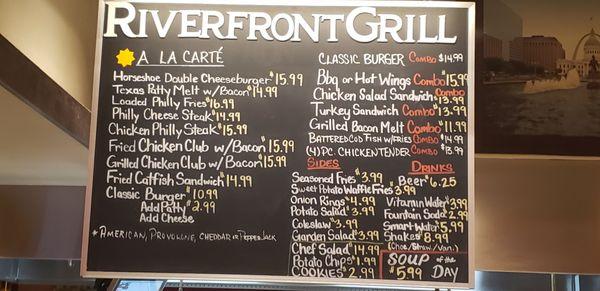 RIVERFRONT GRILL
A LA CARTÉ
Horseshoe Double Cheeseburger $15.99
Texas Patty Melt w/Bacon $14.99
Loaded Philly Fries $16.99
Philly Cheese Steak $14.99
Chicken Philly Steak $15.99
Fried Chicken Club w/Bacon $15.99
Grilled Chicken Club w/Bacon $15.99
Fried Catfish Sandwich $14.99
Classic Burger $10.99
Add Patty $2.99
Add Cheese
* AMERICAN, PROVOLONE, CHEDDAR or PEPPER JACK
CLASSIC BURGER Combo $14.99
BBQ or Hot Wings Combo $15.99
Chicken Salad Sandwich Combo $13.99
Turkey Sandwich Combo $13.99
Grilled Bacon Melt Combo $11.99
BATTERED COD FISH w/FRIES COMBO $14.99
(4) PC. CHICKEN TENDER COMBO $13.99
SIDES
Seasoned Fries $3.99
Sweet Potato Waffle Fries $3.99
Onion Rings $4.99
Potato Salad $3.99
Coleslaw $3.99
Garden Salad $3.99
Chef Salad $14.99
Potato Chips $1.99
COOKIES $2.99
DRINKS
Beer $6.25
Vitamin Water $3.99
Fountain Soda $2.99
Smart Water $5.99
Shakes $8.99
(Choc/Straw/Van.)
SOUP of the DAY
$5.99